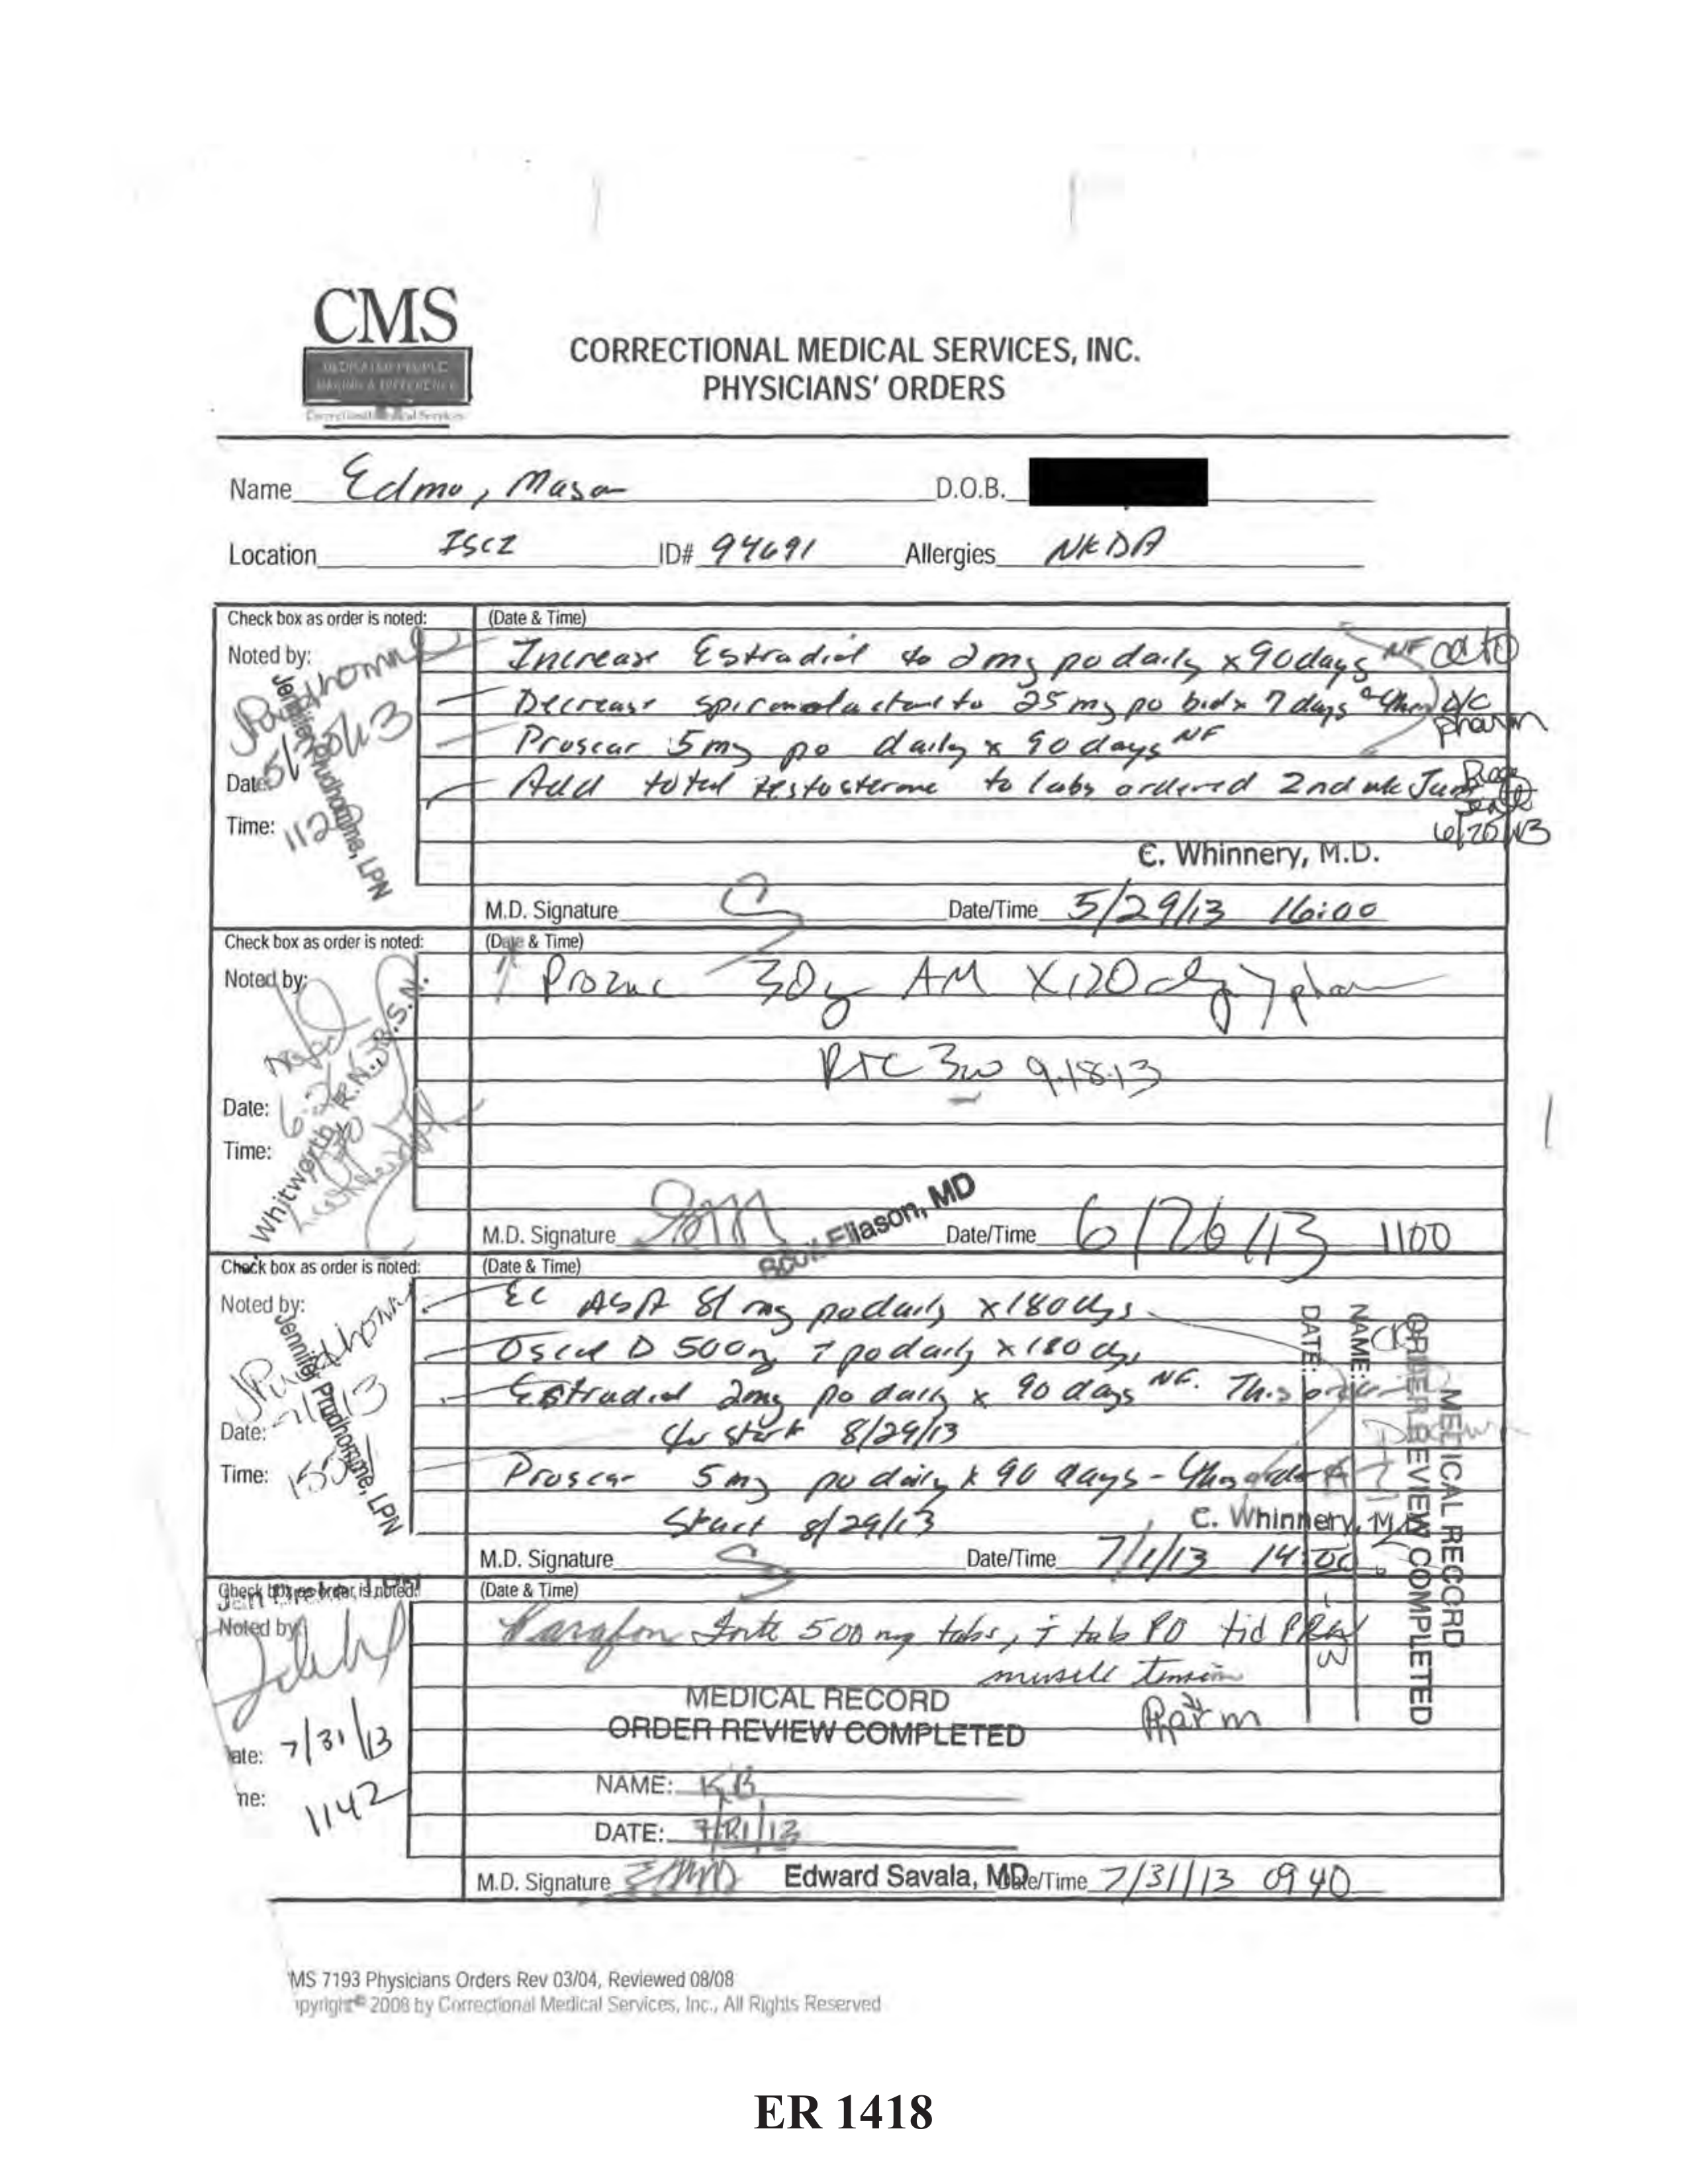 CMS
CORRECTIONAL MEDICAL SERVICES, INC.
PHYSICIANS' ORDERS
Name Edmo, Mason D.O.B.
Location ISCI ID# 94691 Allergies NKDA
Check box as order is noted: (Date & Time)
Noted by:
Jennifer Prudhomme, LPN
Date:
Time: 1120
Increase Estradiol to 2mg po daily x 90 days NF
Decrease spironolactone to 25 mg po bid x 7 days then D/C
pharm
Proscar 5mg po daily x 90 days NF
Add total testosterone to labs ordered 2nd wk June
C. Whinnery, M.D.
M.D. Signature Date/Time 5/29/13 16:00
Check box as order is noted: (Date & Time)
Noted by:
Noted
Whitworth R.N., B.S.N.
Date:
Time:
↑ Prozac 30 AM X 120
RTC 9.18.13
M.D. Signature Scott Eliason, MD Date/Time 6/26/13 1100
Check box as order is noted: (Date & Time)
Noted by:
Jennifer Prudhomme, LPN
Date:
Time:
EC ASA 81 mg po daily x 180 dys
Oscal D 500mg i po daily x 180 dys
Estradiol 2mg po daily x 90 days NF. This order
to start 8/29/13
Proscar 5 mg po daily x 90 days - this order to
Start 8/29/13
C. Whinnery, M.D.
M.D. Signature Date/Time 7/1/13 14:00
MEDICAL RECORD
ORDER REVIEW COMPLETED
NAME:
DATE:
Check box as order is noted: (Date & Time)
Noted by
ate: 7/31/13
me: 1142
Parafon Forte 500 mg tabs, i tab PO tid PRN
muscle tension
Pharm
MEDICAL RECORD
ORDER REVIEW COMPLETED
NAME: KB
DATE: 7/31/13
M.D. Signature Edward Savala, MD Date/Time 7/31/13 0940
MS 7193 Physicians Orders Rev 03/04, Reviewed 08/08
opyright© 2008 by Correctional Medical Services, Inc., All Rights Reserved
ER 1418